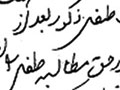 طفلی ذکور بعد از
در حق مطالبه طفلی